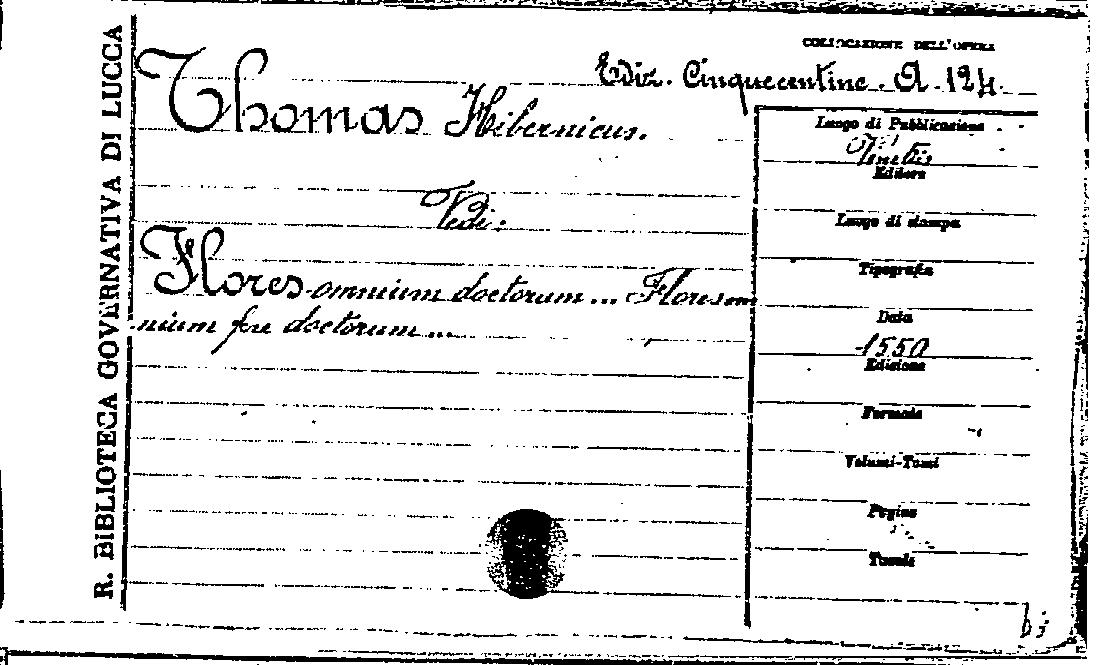 R. BIBLIOTECA GOVERNATIVA DI LUCCA
COLLOCAZIONE DELL'OPERA
Ediz. Cinquecentine. A. 124.
Thomas Hibernicus.
Vedi:
Flores omnium doctorum... Flores om
nium fere doctorum...
Luogo di Pubblicazione
Venetiis
Editore
Luogo di stampa
Tipografia
Data
1550
Edizione
Formato
Volumi-Tomi
Pagine
Tavole